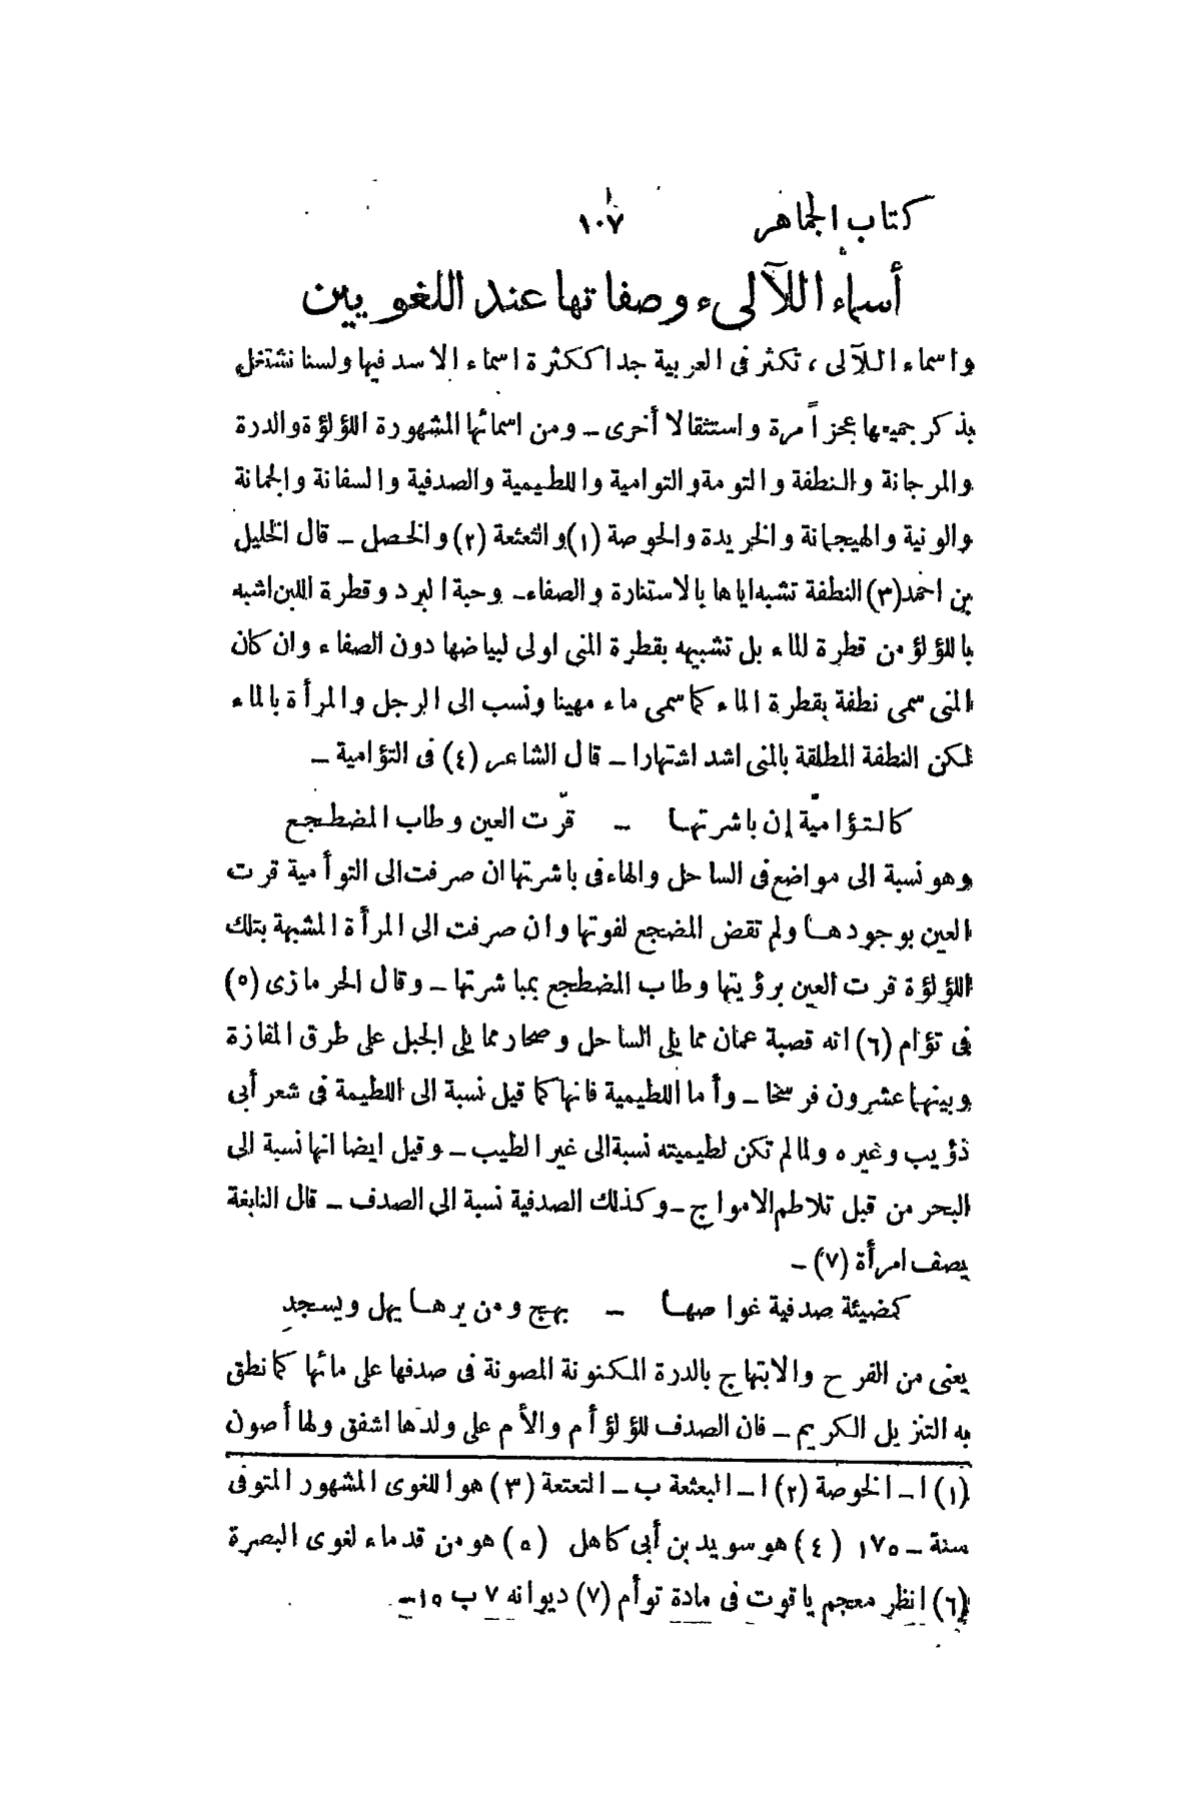 كتاب الجماهر ١٠٧
أسماء اللآلىء وصفاتها عند اللغويين
واسماء اللآلى، تكثر فى العربية جدا ككثرة اسماء الاسد فيها ولسنا نشتغل
بذكر جميعها عجزاً مرة واستثقالا أخرى ــ ومن اسمائها المشهورة اللؤلؤة والدرة
والمرجانة والنطفة والتومة والتوامية واللطيمية والصدفية والسفانة والجمانة
والونية والهيجمانة والخريدة والحوصة (١) والثعثعة (٢) والخصل ــ قال الخليل
بن احمد (٣) النطفة تشبه اياها بالاستنارة والصفاء ــ وحبة البرد وقطرة اللبن اشبه
باللؤلؤ من قطرة الماء بل تشبيهه بقطرة المنى اولى لبياضها دون الصفاء وان كان
المنى سمى نطفة بقطرة الماء كما سمى ماء مهينا ونسب الى الرجل والمرأة بالماء
لكن النطفة المطلقة بالمنى اشد اشتهارا ــ قال الشاعر (٤) فى التؤامية ــ
كالتؤاميّة إن باشرتها ــ قرّت العين وطاب المضطجع
وهو نسبة الى مواضع فى الساحل والهاء فى باشرتها ان صرفت الى التوأمية قرت
العين بوجودها ولم تقض المضجع لفوتها وان صرفت الى المرأة المشبهة بتلك
اللؤلؤة قرت العين برؤيتها وطاب المضطجع بمباشرتها ــ وقال الحرمازى (٥)
فى تؤام (٦) انه قصبة عمان مما يلى الساحل وصحار مما يلى الجبل على طرق المفازة
وبينهما عشرون فرسخا ــ وأما اللطيمية فانها كما قيل نسبة الى اللطيمة فى شعر أبى
ذؤيب وغيره ولما لم تكن لطيميته نسبة الى غير الطيب ــ وقيل ايضا انها نسبة الى
البحر من قبل تلاطم الامواج ــ وكذلك الصدفية نسبة الى الصدف ــ قال النابغة
يصف امرأة (٧) ــ
كمضيئة صدفية غواصها ــ بهج ومن يرها يهل ويسجد
يعنى من الفرح والابتهاج بالدرة المكنونة المصونة فى صدفها على مائها كما نطق
به التنزيل الكريم ــ فان الصدف للؤلؤ أم والأم على ولدها اشفق ولها أصون
(١) ا ــ الخوصة (٢) ا ــ البعثعة ب ــ التعتعة (٣) هو اللغوى المشهور المتوفى
سنة ــ ١٧٥ (٤) هو سويد بن أبى كاهل (٥) هو من قدماء لغوى البصرة
(٦) انظر معجم ياقوت فى مادة توأم (٧) ديوانه ٧ ب ١٥ ــ